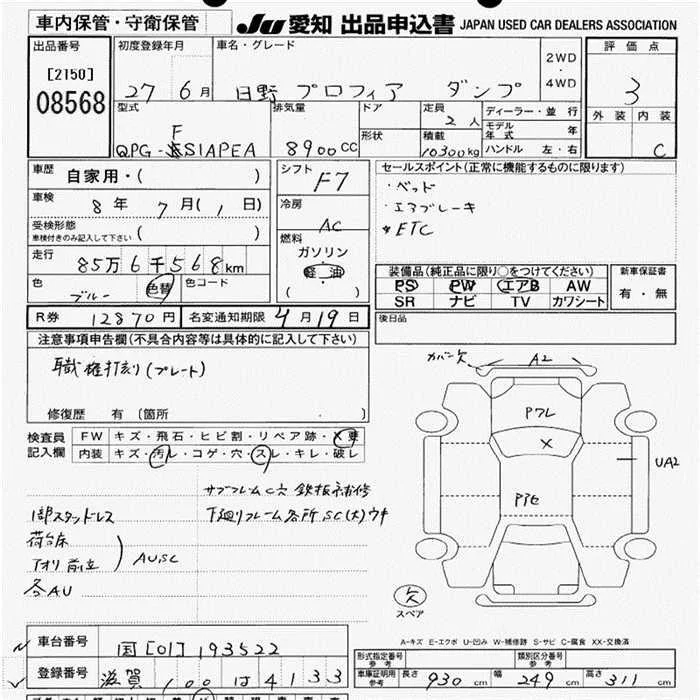 車内保管・守衛保管 JU 愛知 出品申込書 JAPAN USED CAR DEALERS ASSOCIATION
出品番号 初度登録年月 車名・グレード 2WD 4WD 評価点
[2150] 08568 27 6月 日野 プロフィア ダンプ 3
型式 排気量 ドア 定員 2人 ディーラー・並行 外装 内装
モデル年式 年
形状 積載
F
QPG- S1APEA 8900CC 10300kg ハンドル 左・右 C
車歴 自家用・( ) シフト F7 セールスポイント(正常に機能するものに限ります)
・ベッド
車検 8年 7月(1日) 冷房 AC ・エアブレーキ
受検形態 車検付きのみ記入して下さい ( ) ETC
燃料 ガソリン 軽油 ( )
走行 85万6千568km
装備品(純正品に限り○をつけてください) 新車保証書
色 ブルー 色替 色コード PS PW エアB AW 有・無
SR ナビ TV カワシート
R券 12870円 名変通知期限 4月19日 後日品
注意事項申告欄(不具合内容等は具体的に記入して下さい)
職権打刻(プレート)
修復歴 有 [箇所 ]
カバー欠 A2
Pワレ
X
UA2
検査員記入欄 FW キズ・飛石・ヒビ割・リペア跡・X要
内装 キズ・汚レ・コゲ・穴・スレ・キレ・破レ
サブフレームC穴 鉄板補修
1部スタッドレス 下廻りフレーム各所SC(大)ウキ
荷台床
アオリ 前立 AU,SC
各AU
欠
スペア
A-キズ E-エクボ U-凹み W-補修跡 S-サビ C-腐食 XX-交換済
車台番号 国[01]193522 形式指定番号 参考 類別区分番号 参考
登録番号 滋賀 100 は 4133 車庫証明用 参考 長さ 930cm 幅 249cm 高さ 311cm